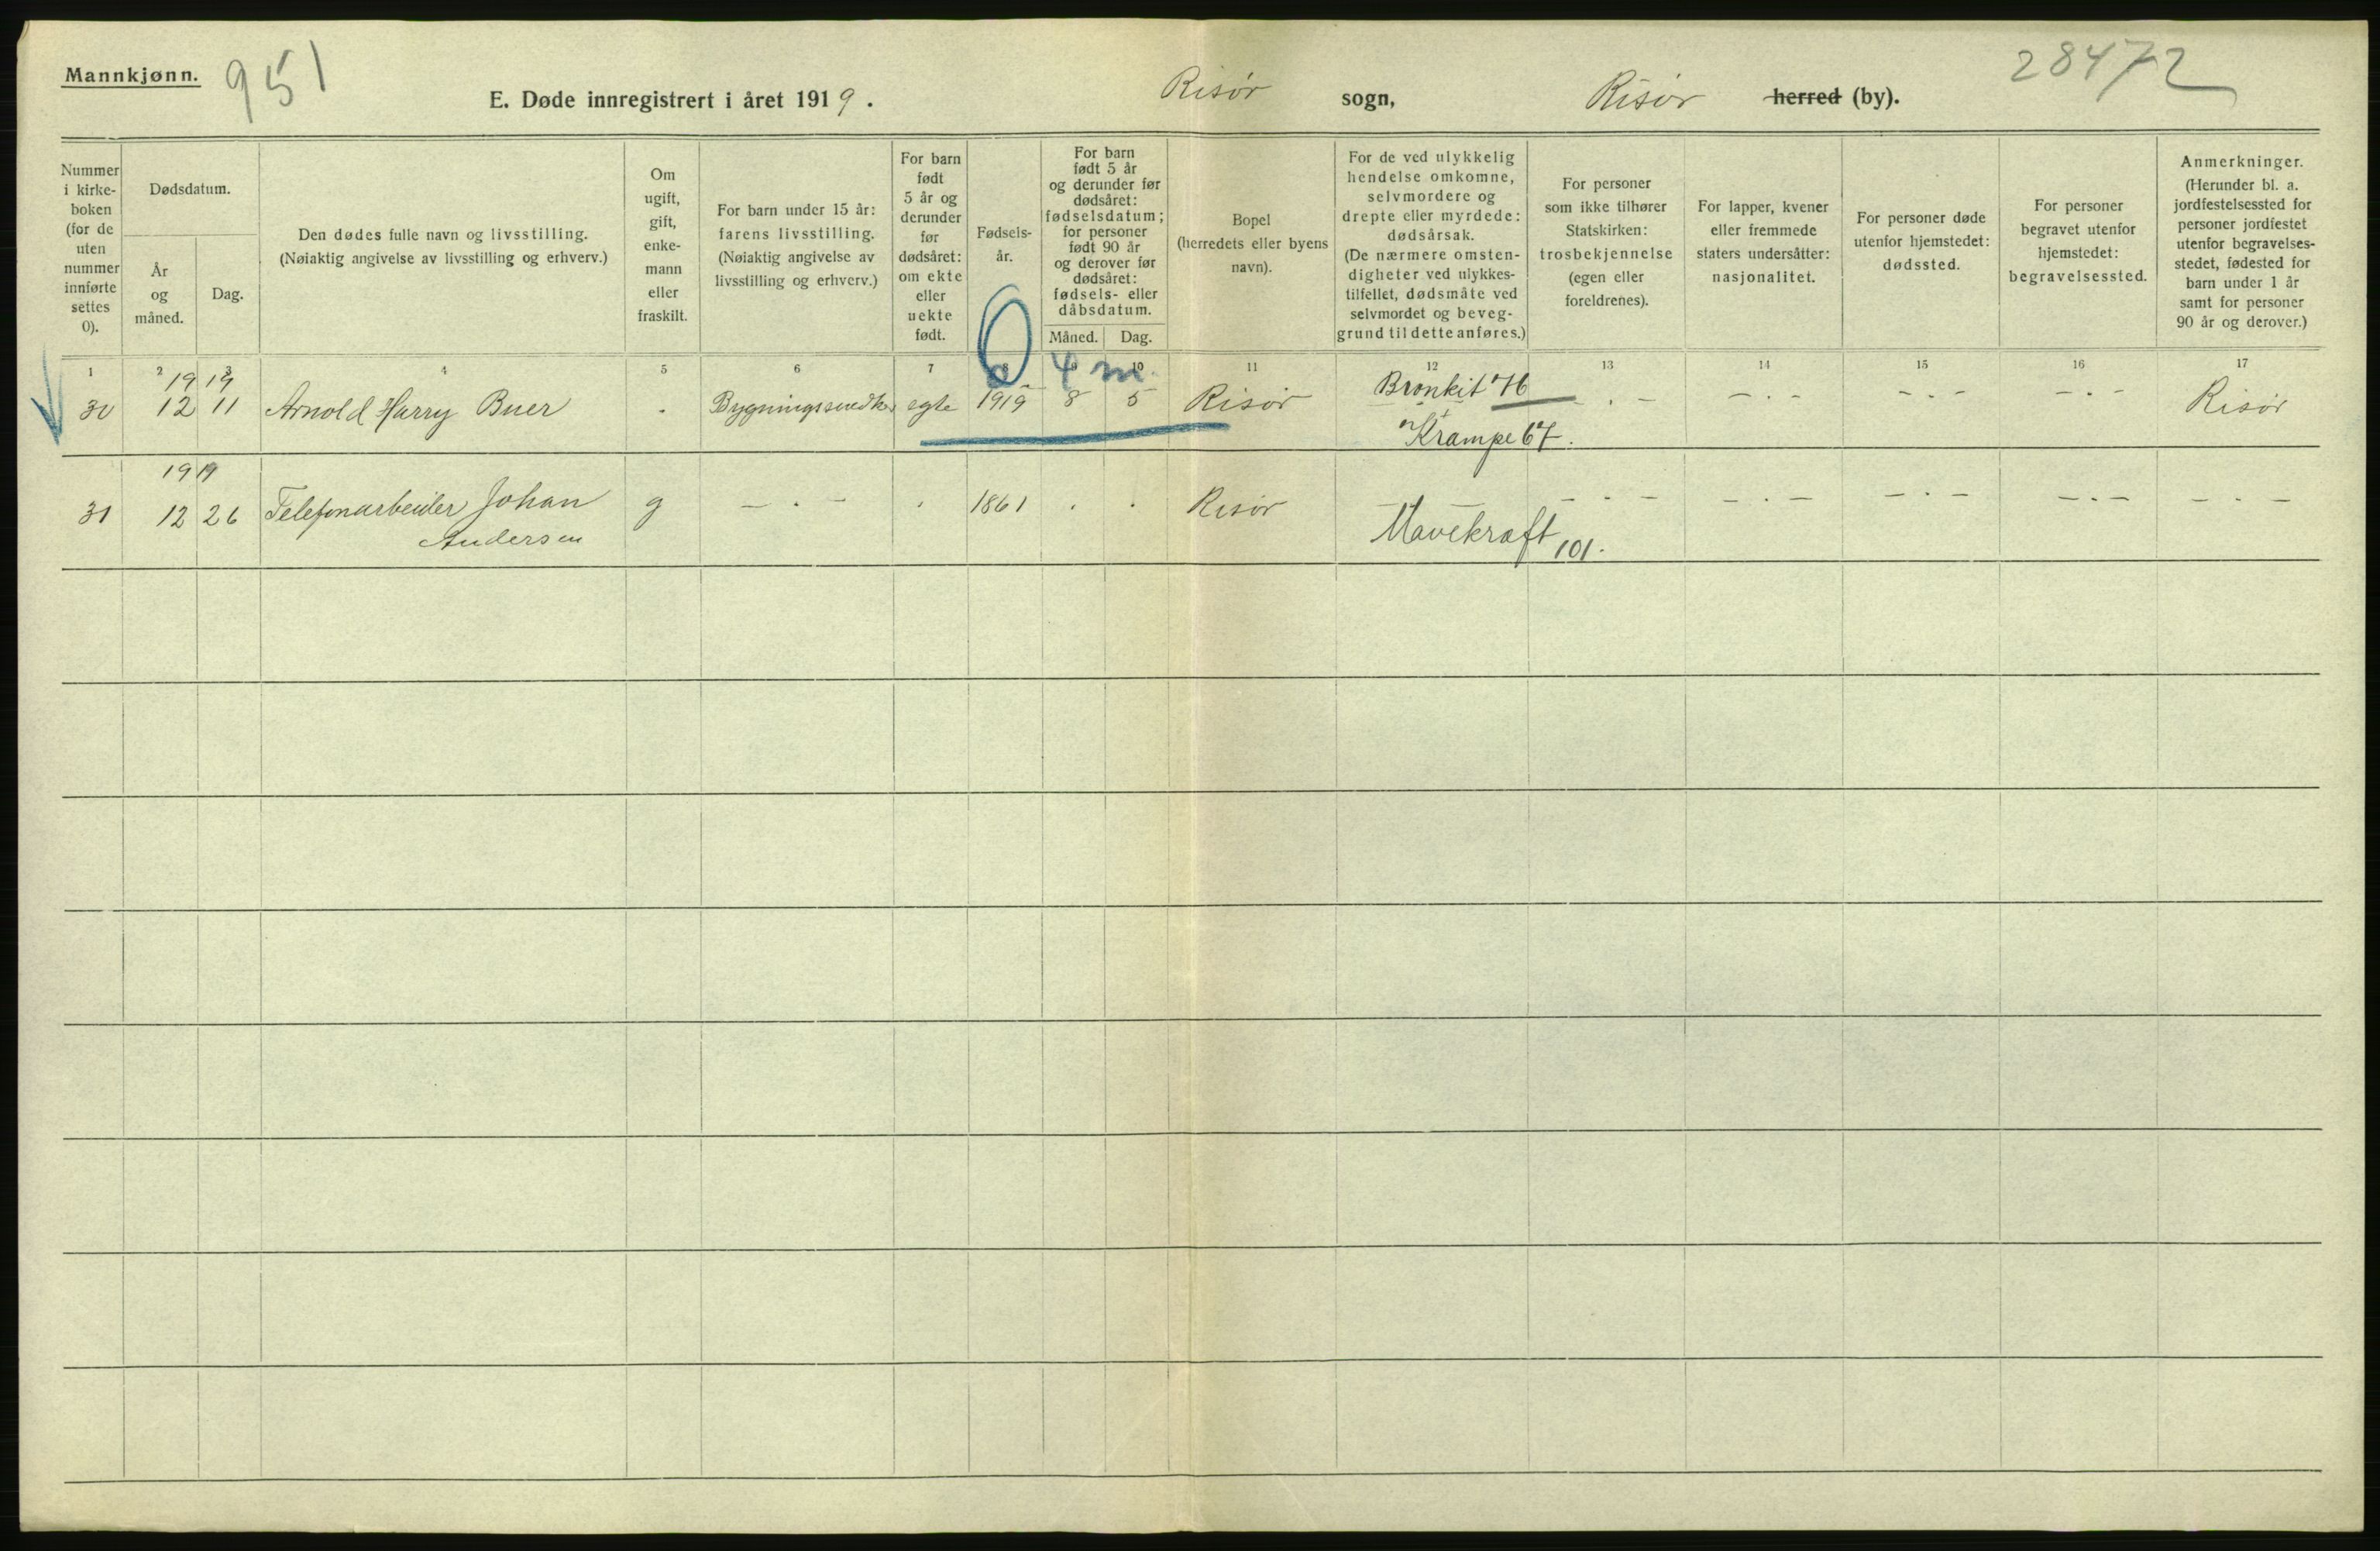 Mannkjønn.
951
E. Døde innregistrert i året 1919.
Risør sogn,
Risør herred (by).
28472
Nummer
i kirke-
boken
(for de
uten
nummer
innførte
settes
0).
Dødsdatum.
År
og
måned.
Dag.
Den dødes fulle navn og livsstilling.
(Nøiaktig angivelse av livsstilling og erhverv.)
Om
ugift,
gift,
enke-
mann
eller
fraskilt.
For barn under 15 år:
farens livsstilling.
(Nøiaktig angivelse av
livsstilling og erhverv.)
For barn
født
5 år og
derunder
før
dødsåret:
om ekte
eller
uekte
født.
Fødsels-
år.
For barn
født 5 år
og derunder før
dødsåret:
fødselsdatum;
for personer
født 90 år
og derover før
dødsåret:
fødsels- eller
dåbsdatum.
Måned.
Dag.
Bopel
(herredets eller byens
navn).
For de ved ulykkelig
hendelse omkomne,
selvmordere og
drepte eller myrdede:
dødsårsak.
(De nærmere omsten-
digheter ved ulykkes-
tilfellet, dødsmåte ved
selvmordet og beveg-
grund til dette anføres.)
For personer
som ikke tilhører
Statskirken:
trosbekjennelse
(egen eller
foreldrenes).
For lapper, kvener
eller fremmede
staters undersåtter:
nasjonalitet.
For personer døde
utenfor hjemstedet:
dødssted.
For personer
begravet utenfor
hjemstedet:
begravelsessted.
Anmerkninger.
(Herunder bl. a.
jordfestelsessted for
personer jordfestet
utenfor begravelses-
stedet, fødested for
barn under 1 år
samt for personer
90 år og derover.)
1 2 3 4 5 6 7 8 9 10 11 12 13 14 15 16 17
0 4 m.
1919
30 12 11 Arnold Harry Buer . egte 1919 8 5 Risør Bronkit 76 - . - - . - - . - - . - Risør
Krampe 67.
1919
31 12 26 Telefonarbeider Johan g - . - . 1861 . . Risør Mavekræft 101. - . - - . - - . - - . - - . -
Andersen